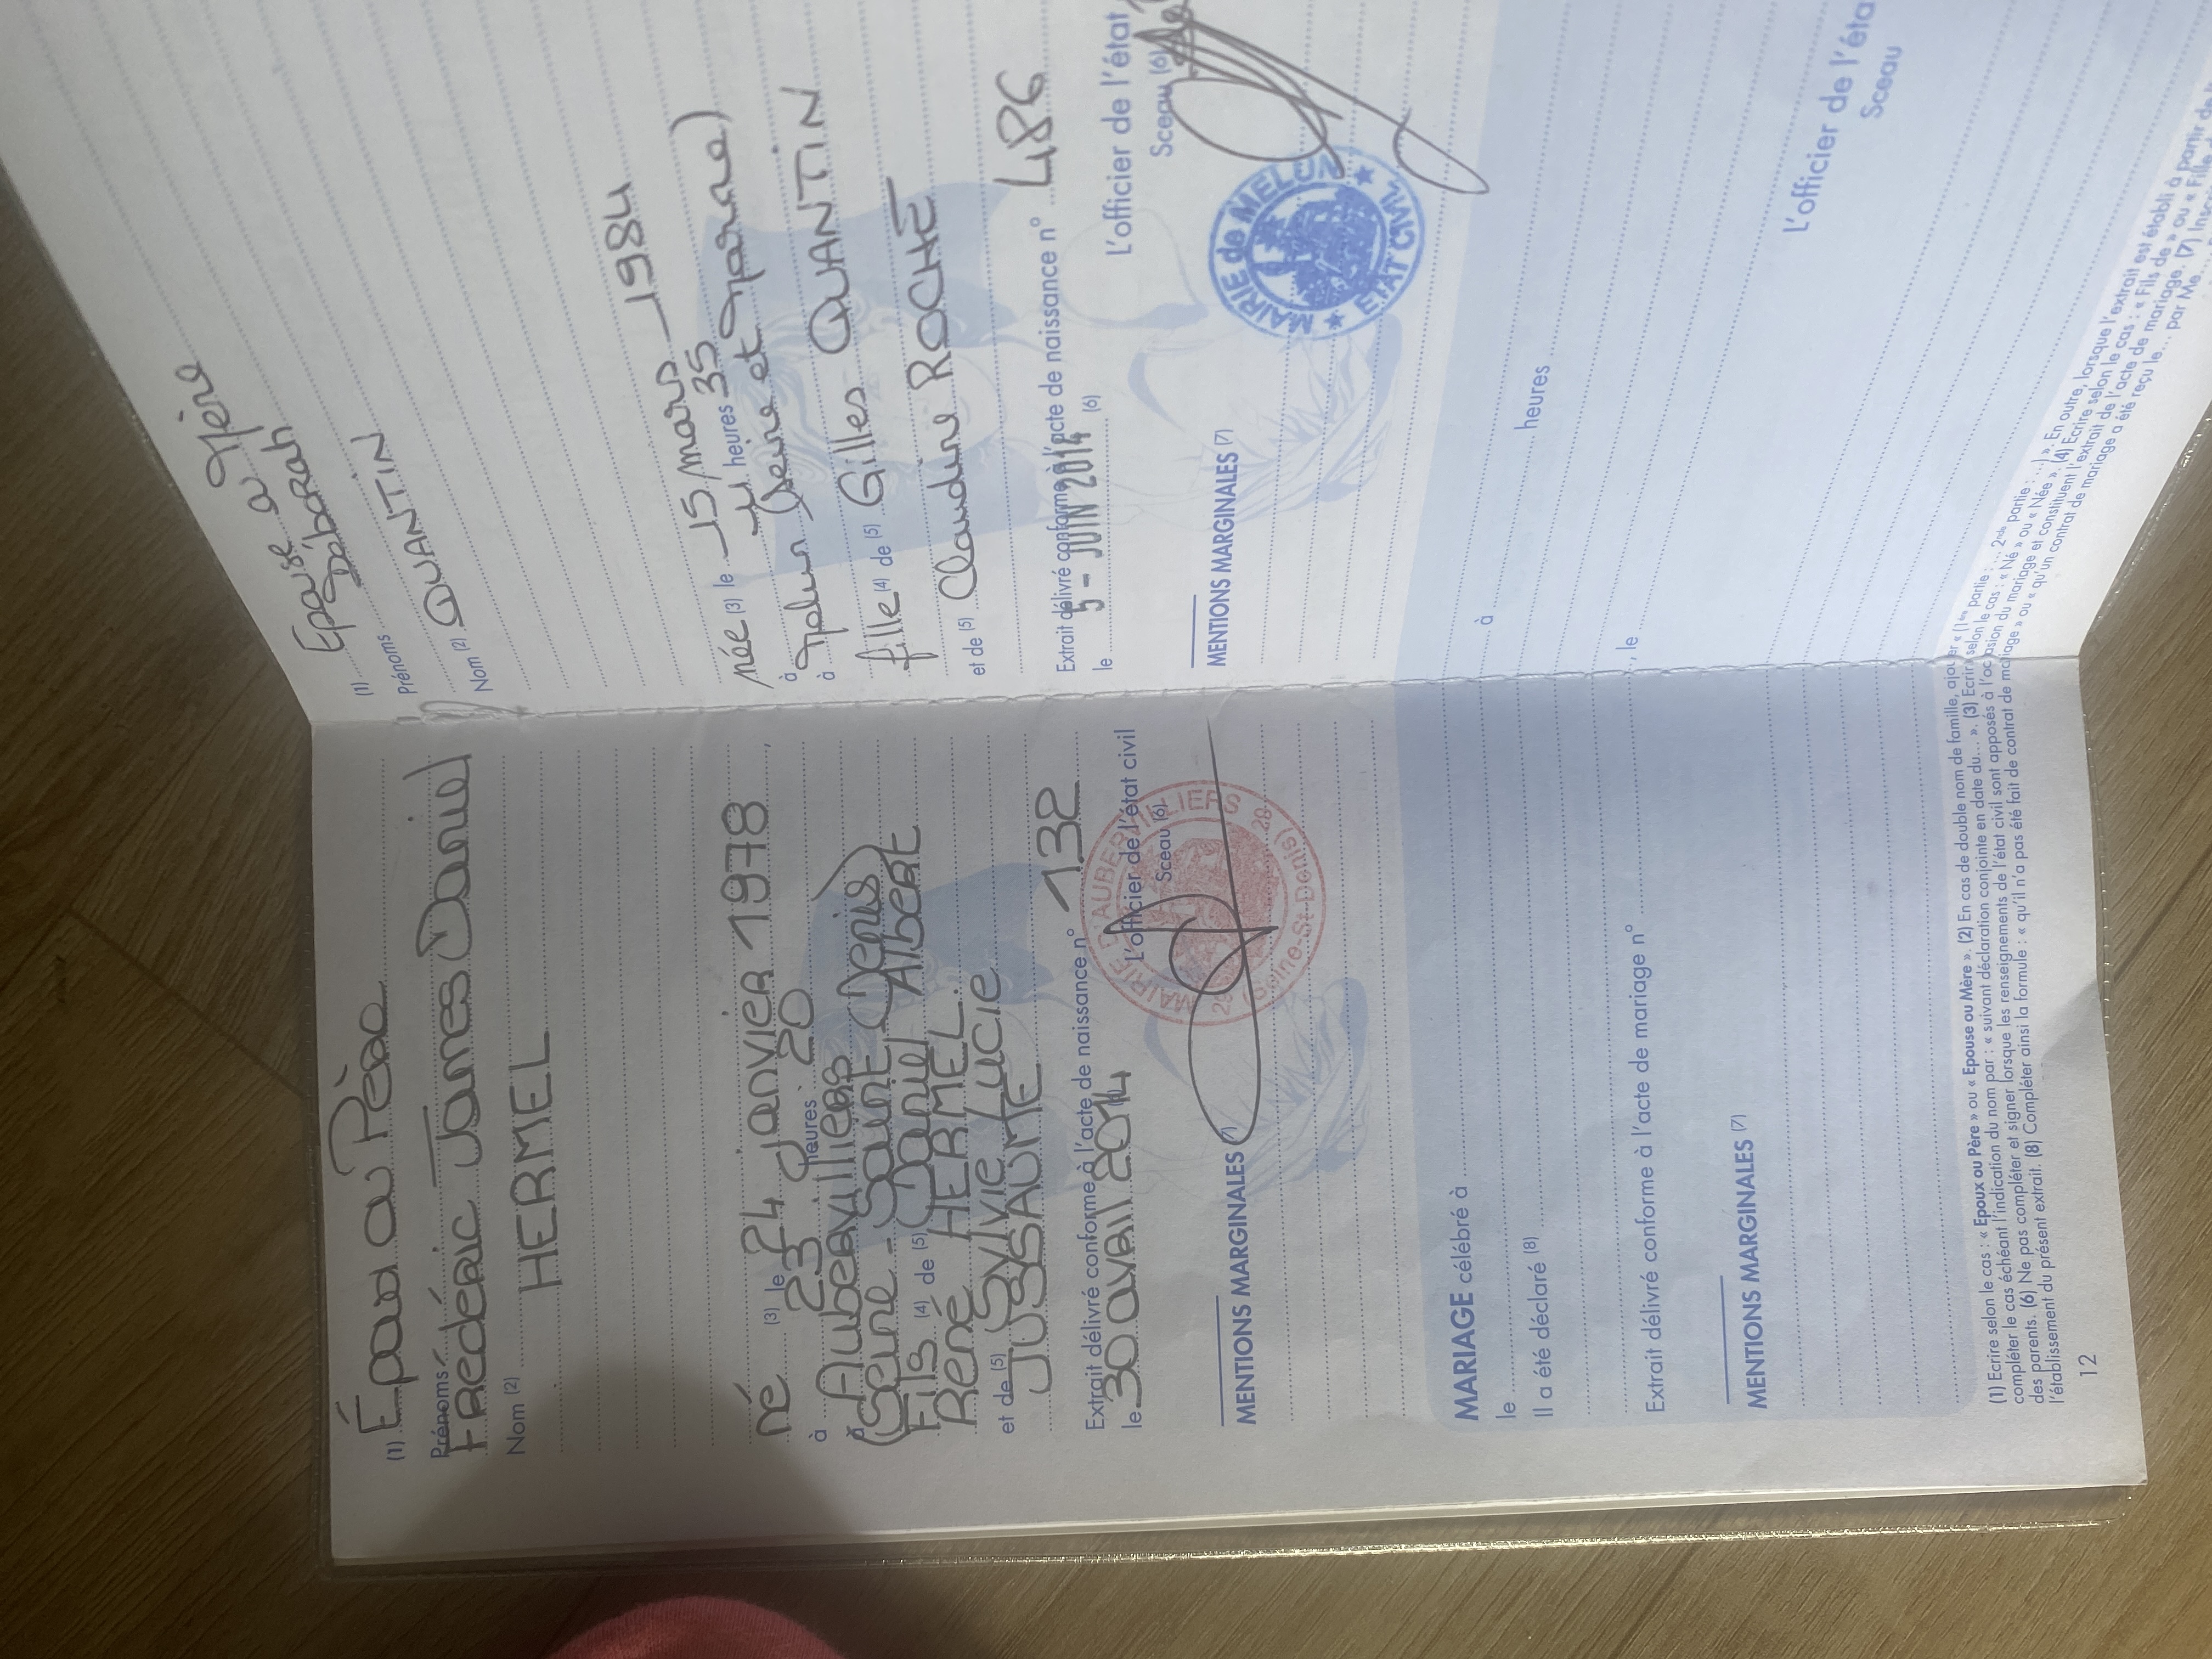 (1) Époux ou Père
Prénoms Frédéric James Daniel
Nom (2) HERMEL
né (3) le 24 janvier 1978
à 23 heures 20
à Aubervilliers
(Seine-Saint Denis)
Fils (4) de (5) Daniel Albert
René HERMEL
et de (5) Sylvie Lucie
JUSSAUME
Extrait délivré conforme à l'acte de naissance n° 132
le 30 avril 2014 L'officier de l'état civil
Sceau (6)
MAIRIE D'AUBERVILLIERS
(Seine-St-Denis)
MENTIONS MARGINALES (7)
MARIAGE célébré à
le
Il a été déclaré (8)
Extrait délivré conforme à l'acte de mariage n°
MENTIONS MARGINALES (7)
(1) Ecrire selon le cas : « Epoux ou Père » ou « Epouse ou Mère ». (2) En cas de double nom de famille, ajouter « (1ère partie : ... 2nde partie : ...) ». En outre, lorsque l'extrait est établi à partir
compléter le cas échéant l'indication du nom par : « suivant déclaration conjointe en date du... ». (3) Ecrire selon le cas : « Né » ou « Née ». (4) Ecrire selon le cas : « Fils de » ou « Fille
des parents. (6) Ne pas compléter et signer lorsque les renseignements de l'état civil sont apposés à l'occasion du mariage et constituent l'extrait de l'acte de mariage. (7)
l'établissement du présent extrait. (8) Compléter ainsi la formule : « qu'il n'a pas été fait de contrat de mariage » ou « qu'un contrat de mariage a été reçu le... par Me
12
(1) Epouse ou Mère
Prénoms Déborah
Nom (2) QUANTIN
née (3) le 15 mars 1984
à heures 35
à Melun (Seine et Marne)
fille (4) de (5) Gilles QUANTIN
et de (5) Claudine ROCHE
Extrait délivré conforme à l'acte de naissance n° 486
le 5 - JUIN 2014 (6)
L'officier de l'état
Sceau (6)
MAIRIE de MELUN
ETAT CIVIL
MENTIONS MARGINALES (7)
à heures
, le
L'officier de l'éta
Sceau